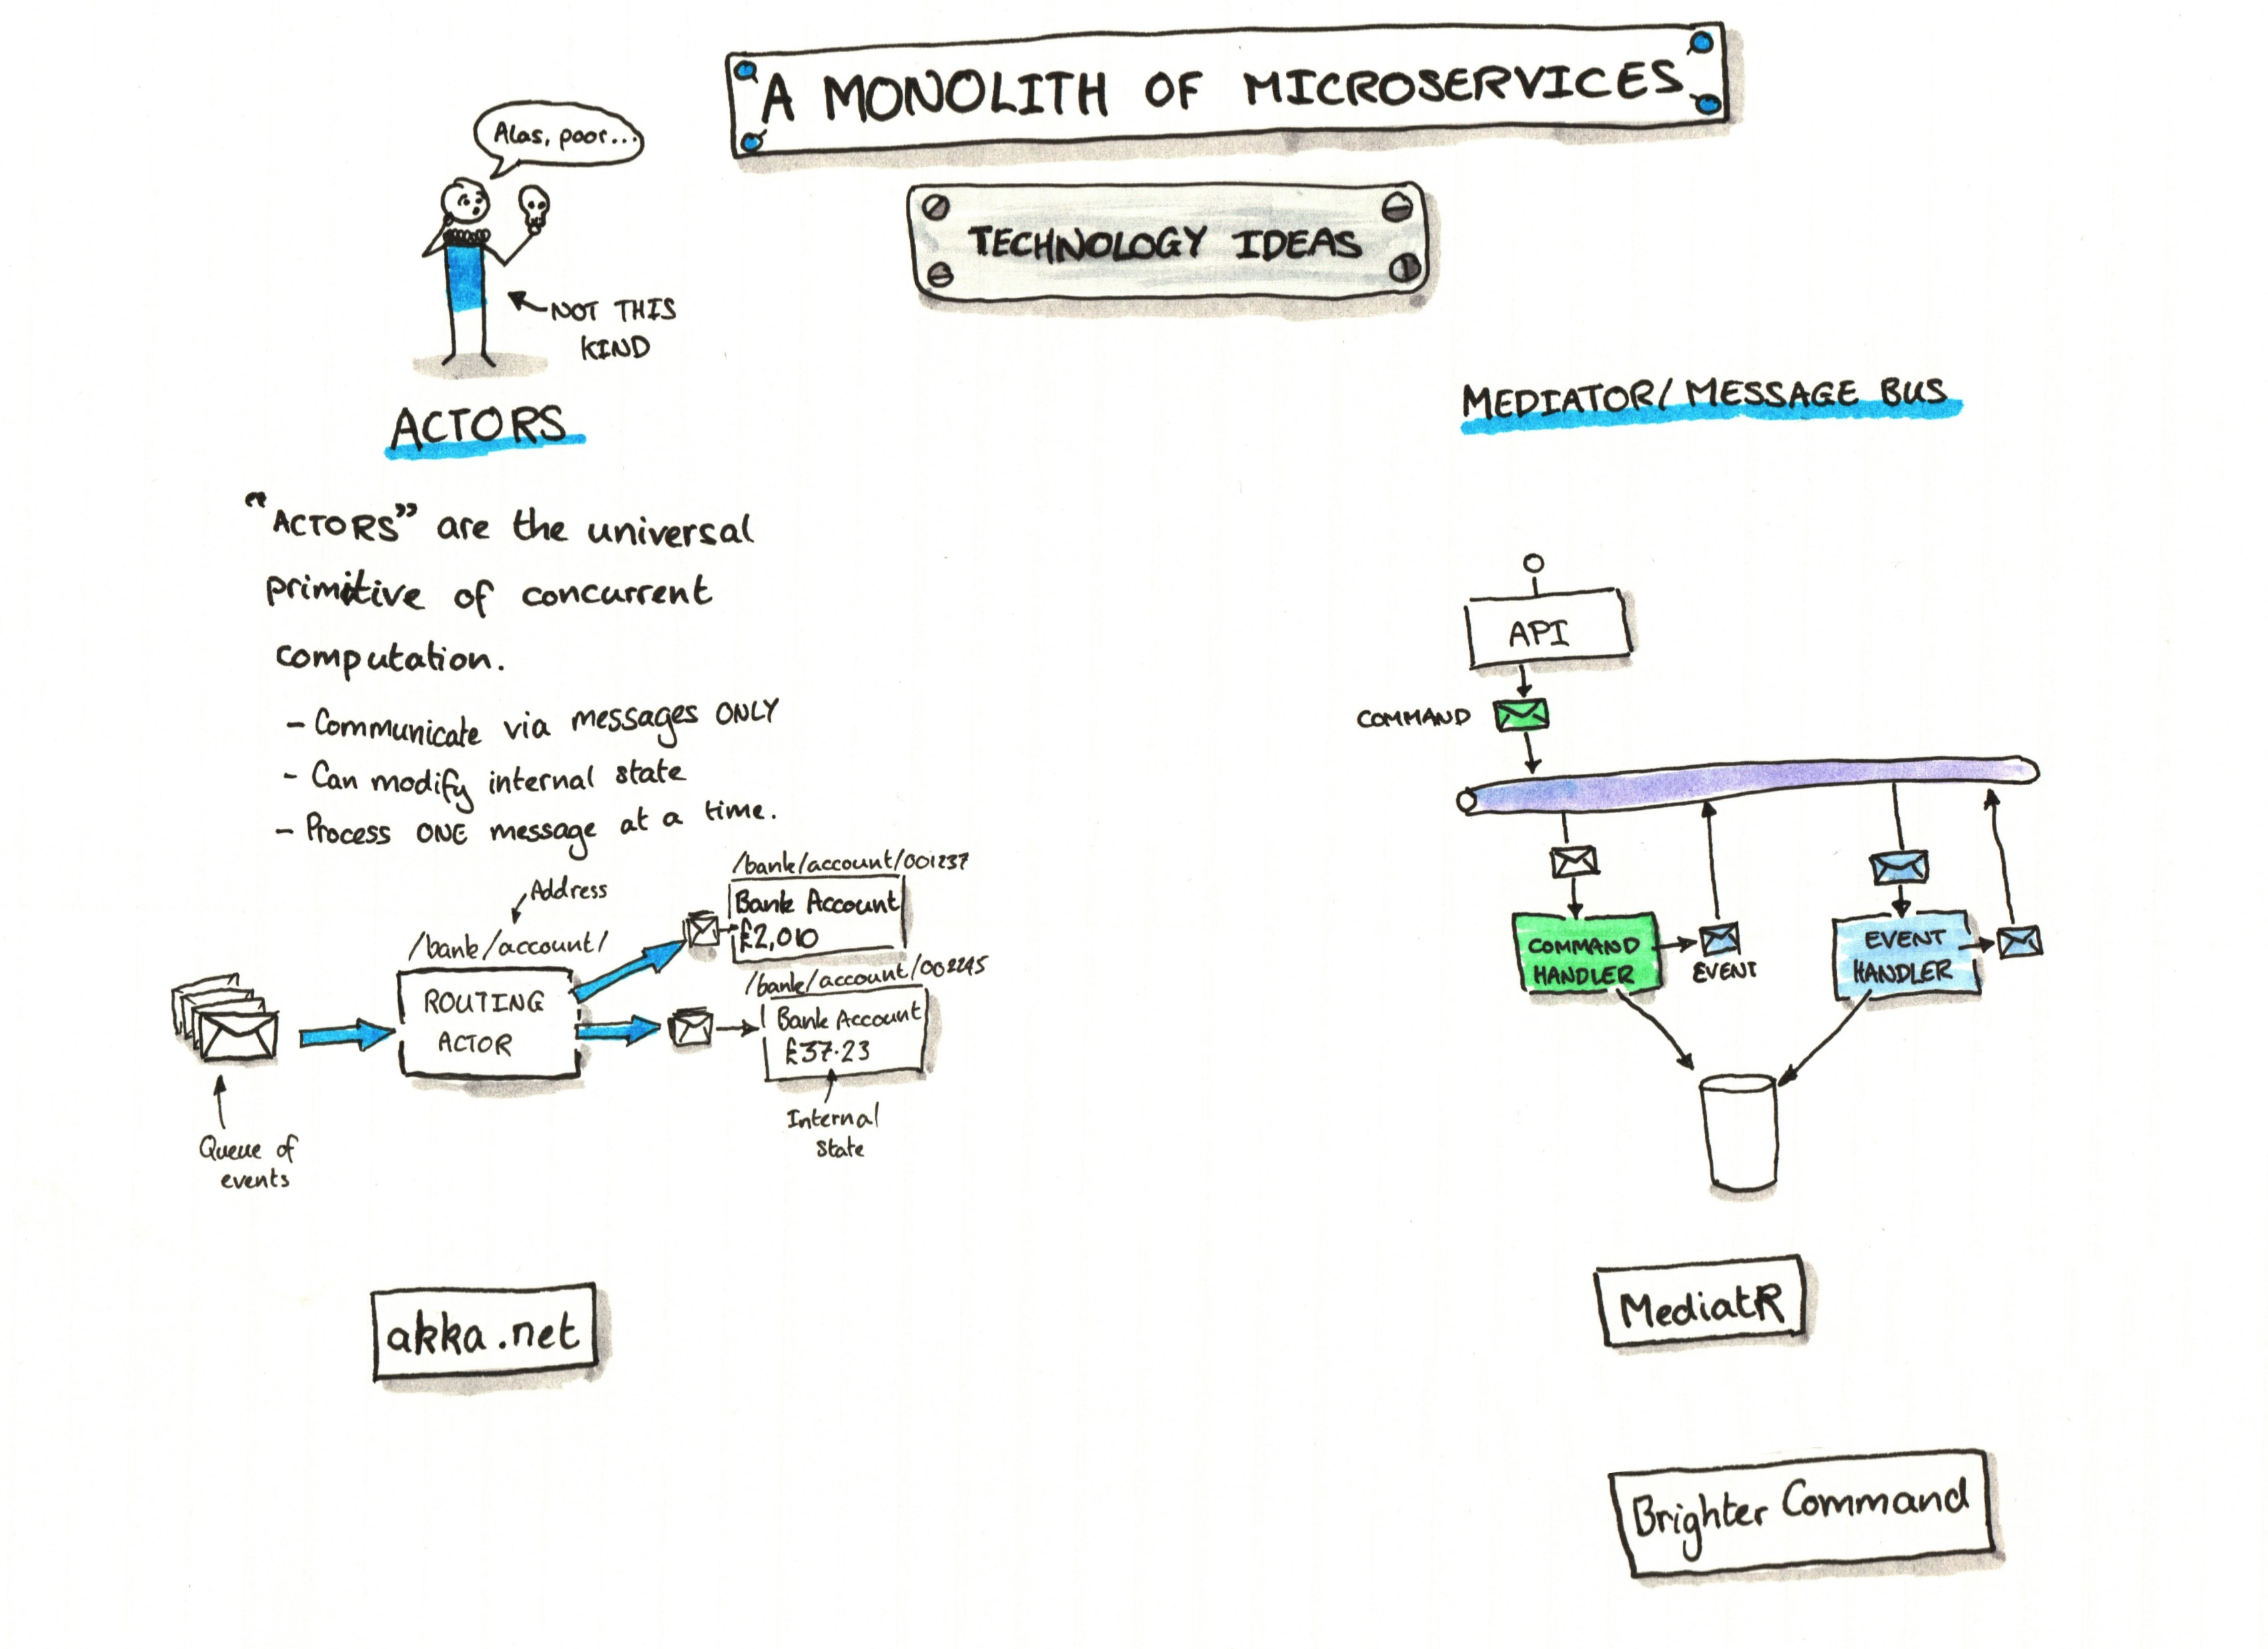 A MONOLITH OF MICROSERVICES
TECHNOLOGY IDEAS
Alas, poor...
NOT THIS
KIND
ACTORS
"ACTORS" are the universal
primitive of concurrent
computation.
- Communicate via messages ONLY
- Can modify internal state
- Process ONE message at a time.
Address
/bank/account/
ROUTING
ACTOR
Queue of
events
/bank/account/001237
Bank Account
£2,010
/bank/account/002245
Bank Account
£37.23
Internal
State
akka.net
MEDIATOR/MESSAGE BUS
API
COMMAND
COMMAND
HANDLER
EVENT
EVENT
HANDLER
MediatR
Brighter Command